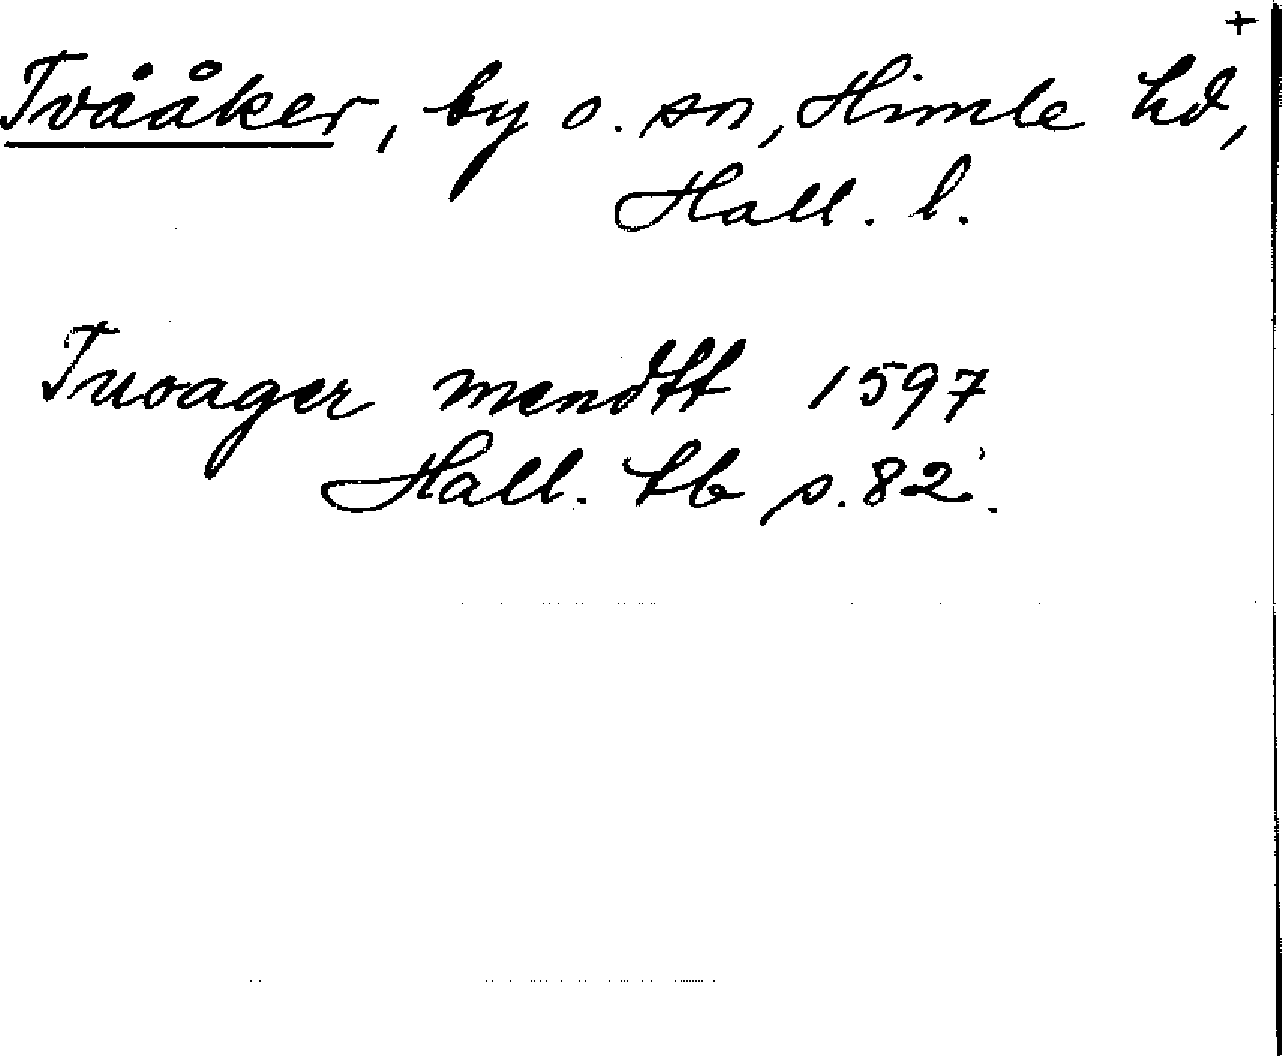 +
Tvååker, by o. sn, Himle hd,
Hall. l.
Tuoager mendtt 1597
Hall. lb s. 82.